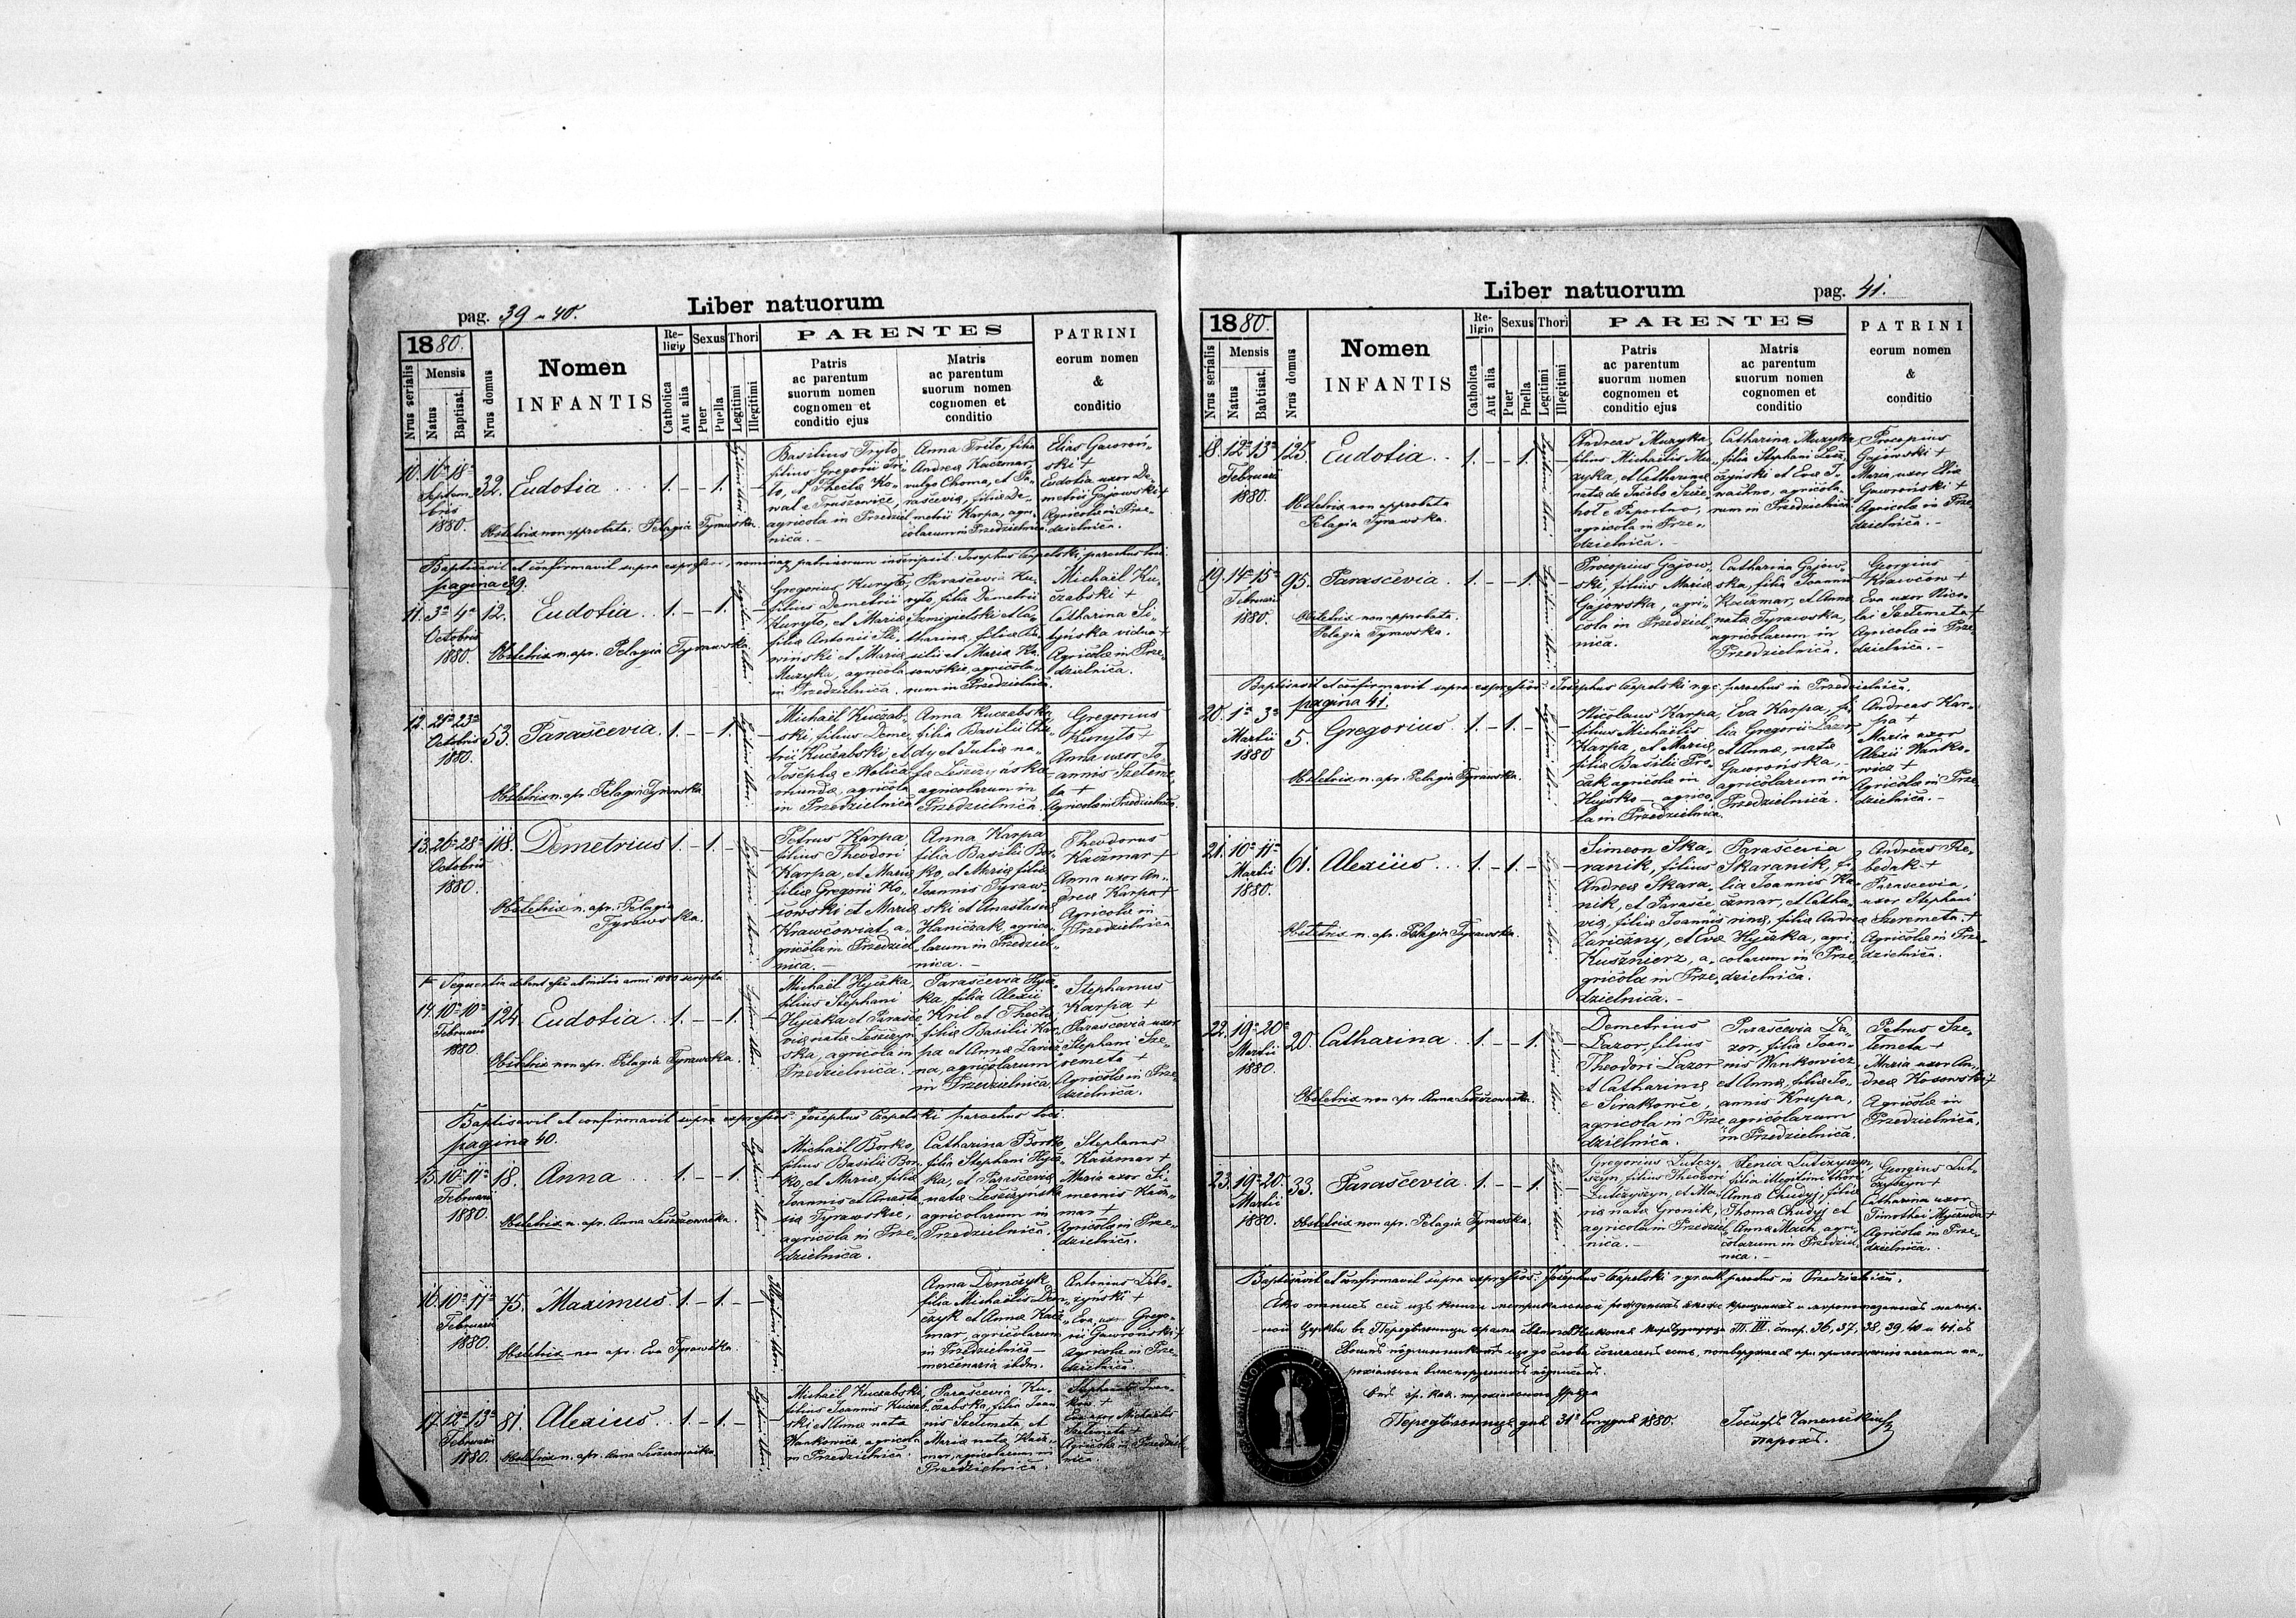 pag. 39 a 40.
Liber natuorum
1880.
Nrus serialis
Mensis
Natus
Baptisat.
Nrus domus
Nomen
INFANTIS
Religio
Catholica
Aut alia
Sexus
Puer
Puella
Thori
Legitimi
Illegitimi
PARENTES
Patris
ac parentum
suorum nomen
cognomen et
conditio ejus
Matris
ac parentum
suorum nomen
cognomen et
conditio
PATRINI
eorum nomen
&
conditio
10. 16a 18a
Septem
bris
1880.
32. Eudotia 1. - - 1.
Obstetrix non approbata. Pelagia Tyrawska.
Basilius Tryto
filius Gregorii Tri-
to, et Thecla Ko-
wal e Truszowice,
agricola in Przedziel
nica. -
Anna Trito, filia
Andrea Kaczmar,
vulgo Choma, et Pa-
rascevia, filia De-
metrii Karpa, agri-
colarum in Przedzielnica.
Elias Gawroń-
ski +
Eudotia uxor De-
metrii Gajowski +
Agricola in Prze-
dzielnica.
Baptisavit et confirmavit supra expressos, nominaq patrinorum inscripsit: Josephus Czapelski, parochus loci
pagina 39.
11. 3a 4a
Octobris
1880.
12. Eudotia 1. - - 1.
Obstetrix n. apr. Pelagia Tyrawska
Gregorius Kuryto,
filius Demetrii
Kuryto, et Maria
filia Antonii Sli-
wiński et Maria
Muzyka, agricola
in Przedzielnica
Parascevia Ku-
ryto, filia Demetrii
Szmigielski et Ca-
tharina, filia Ba-
silii et Maria Ka-
sowskie, agricola-
rum in Przedzielnica.
Michaël Ku-
czabski +
Catharina Si-
tyńska vidua +
Agricola in Prze-
dzielnica.
12. 21a 23a
Octobris
1880.
53. Parascevia. 1. - - 1.
Obstetrix n. apr. Pelagia Tyrawska
Michaël Kuczab-
ski, filius Deme-
trii Kuczabski et
Josepha e Molica
oriunda, agricola
in Przedzielnica
Anna Kuczabska
filia Basilii Chu-
dy et Julia na-
ta Leszczyńska
agricolarum in
Przedzielnica.
Gregorius
Kuryto +
Anna uxor Jo-
annis Szeteme-
ta +
Agricola in Przedzielnica.
13. 26a 28a
Octobris
1880.
118. Demetrius 1. - 1. -
Obstetrix n. apr. Pelagia
Tyrawska.
Petrus Karpa
filius Theodori
Karpa, et Maria
filia Gregorii Ko-
sowski et Maria
Krawcowiat, a-
gricola in Przedziel
nica. -
Anna Karpa
filia Basilii Bor-
ko, et Maria filia
Joannis Tyraw-
ski et Anastasia
Haniczak, agrico-
larum in Przedziel-
nica. -
Theodorus
Kaczmar +
Anna uxor An-
drea Karpa +
Agricola in
Przedzielnica
Sequentia debent esse ab initio anni 1880 scripta
14. 10a 10a
Februarii
1880.
124. Eudotia 1. - - 1.
Obstetrix non apr. Pelagia Tyrawska.
Michaël Hyczka,
filius Stephani
Hyczka et Parasce
via nata Leszczyn
ska, agricola in
Przedzielnica.
Parascevia Hycz-
ka, filia Alexii
Kril et Thecla,
filia Basilii Kar-
pa et Anna Laricz
na, agricolarum
in Przedzielnica.
Stephanus
Karpa +
Parascevia uxor
Stephani Sze-
remeta +
Agricola in Prze-
dzielnica.
Baptisavit et confirmavit supra expressos: Josephus Czapelski parochus loci
pagina 40.
15. 10a 11a
Februarii
1880.
18. Anna 1. - - 1.
Obstetrix n. apr. Anna Leszczowacka.
Michaël Borko,
filius Basilii Bor-
ko, et Maria, filia
Joannis et Anasta-
sia Tyrawskie,
agricola in Prze-
dzielnica.
Catharina Borko,
filia Stephani Hycz-
ka, et Parascevia
nata Leszczynska
agricolarum in
Przedzielnica.
Stephanus
Kaczmar +
Maria uxor Si-
meonis Kacz-
mar +
Agricola in Prze-
dzielnica.
16. 10a 11a
Februarii
1880.
75. Maximus 1. - 1. -
Obstetrix non apr. Eva Tyrawska
Anna Demczyk
filia Michaëlis Dem-
czyk et Anna Kacz-
mar, agricolarum
in Przedzielnica -
mercenaria ibdm.
Antonius Lito-
zyński +
Eva, uxor Grego-
rii Gawroński +
Agricola in Prze-
dzielnica.
17. 12a 13a
Februarii
1880.
81. Alexius 1. - 1. -
Obstetrix n. apr. Anna Leszczowacka
Michaël Kuczabski
filius Joannis Kuczab
ski et Anna nata
Wankowicz, agricola
in Przedzielnica.
Parascevia Ku-
czabska, filia Joan-
nis Szetemeta, et
Maria nata Kacz-
mar, agricolarum in
Przedzielnica.
Eva uxor Michaëlis
Szetemeta +
Agricola in Przedziel-
nica.
Liber natuorum
pag. 41.
1880.
Nrus serialis
Mensis
Natus
Babtisat.
Nrus domus
Nomen
INFANTIS
Religio
Catholica
Aut alia
Sexus
Puer
Puella
Thori
Legitimi
Illegitimi
PARENTES
Patris
ac parentum
suorum nomen
cognomen et
conditio ejus
Matris
ac parentum
suorum nomen
cognomen et
conditio
PATRINI
eorum nomen
&
conditio
18. 12a 13a
Februarii
1880.
125. Eudotia. 1. - - 1.
Obstetrix non approbata
Pelagia Tyrawska.
Andreas Muzyka,
filius Michaëlis Mu-
zyka, et Catharina
nata de Jacobo Szcze-
hot e Paportno,
agricola in Prze-
dzielnica. -
Catharina Muzyka
filia Stephani Lesz-
czyński et Eva J-
waskno, agricola-
rum in Przedzielnica.
Procopius
Gajowski +
Maria uxor Elia
Gawroński +
Agricola in Prze
dzielnica. -
19. 14a 15a
Februarii
1880.
95. Parascevia. 1. - - 1.
Obstetrix non approbata.
Pelagia Tyrawska.
Procopius Gajow-
ski, filius Maria
Gajowska, agri-
cola in Przedziel-
nica.
Catharina Gajow-
ska, filia Joannis
Kaczmar, et Anna
nata Tyrawska,
agricolarum in
Przedzielnica.
Georgius
Krawców +
Eva uxor Nico-
lai Szetemeta +
Agricola in Prze
dzielnica. -
Baptisavit et confirmavit supra expressos: Josephus Czapelski r.g.c. parochus in Przedzielnica.
pagina 41.
20. 1a 3a
Martii
1880
5. Gregorius 1. - 1. -
Obstetrix n. apr. Pelagia Tyrawska.
Nicolaus Karpa,
filius Michaëlis
Karpa, et Maria,
filia Basilii Pro-
cak agricola in
Hujsko - agrico
la in Przedzielnica.
Eva Karpa, fi-
lia Gregorii Lazor
et Anna, nata
Gawrońska, -
agricolarum in
Przedzielnica.
Andreas Kar-
pa +
Maria uxor
Alexii Wanko-
wicz +
Agricola in Prze
dzielnica. -
21. 10a 11a
Martii
1880.
61. Alexiüs 1. - 1. -
Obstetrix n. apr. Pelagia Tyrawska.
Simeon Ska-
ranik, filius
Andrea Skara-
nik, et Parasce
via, filia Joannis
Zariczny, et Eva
Kusznierz, a-
gricola in Prze
dzielnica. -
Parascevia
Skaranik, fi-
lia Joannis Ka-
czmar, et Catha-
rina, filia Andrea
Hyczka, agri-
colarum in Prze-
dzielnica.
Andreas Re-
bedak +
Parascevia,
uxor Stephani
Szeremeta +
Agricola in Prze-
dzielnica.
22. 19a 20a
Martii
1880.
20. Catharina 1. - - 1.
Obstetrix non apr. Anna Leszczowacka.
Demetrius
Lazor, filius
Theodori Lazor
et Catharina
e Sirakowce,
agricola in Prze
dzielnica.
Parascevia La-
zor, filia Joan-
nis Wankowicz
et Anna, filia Jo-
annis Krupa,
agricolarum
in Przedzielnica.
Petrus Sze-
temeta +
Maria uxor An-
drea Kosowski +
Agricola in
Przedzielnica.
23. 19a 20a
Martii
1880.
33. Parascevia 1. - - 1.
Obstetrix non apr. Pelagia Tyrawska.
Gregorius Lutczy-
szyn, filius Theodori
Lutczyszyn, et Ma-
ria nata Gronik,
agricola in Przedziel
nica. -
Xenia Lutczyszyn,
filia illegitimi thori
Anna Chudyj, filia
Thoma Chudyj et
Anna Mach, agri-
colarum in Przedziel-
nica. -
Georgius Lut-
czyszyn +
Catharina uxor
Timothei Myczuda +
Agricola in Prze-
dzielnica.
Baptisavit et confirmavit supra expressos: Josephus Czapelski r.gr.cath parochus in Przedzielnica.
Т. III. стор. 36, 37, 38, 39, 40 и 41.
31 Студня 1880.
Парохъ.